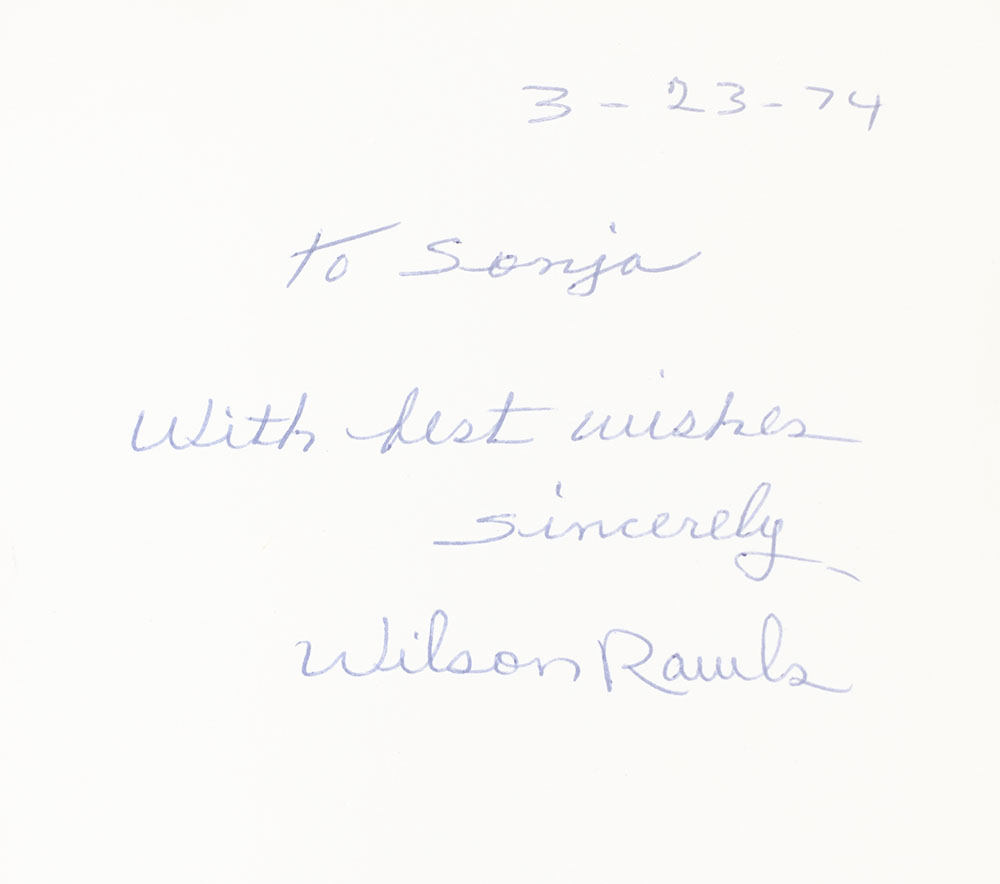 3 - 23 - 74
To Sonja
With best wishes
sincerely
Wilson Rawls